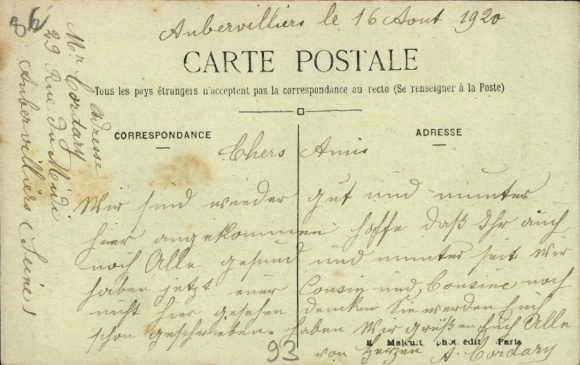 86
Aubervilliers le 16 Aout 1920
CARTE POSTALE
Tous les pays étrangers n'acceptent pas la correspondance au recto (Se renseigner à la Poste)
CORRESPONDANCE
ADRESSE
Adresse
Mr Cordary
29 Rue du Midi
Aubervilliers (Seine)
Chers Amis
Wir sind wieder gut und munter
hier angekommen hoffe daß Ihr auch
noch Alle gesund und munter seit Wir
haben jetzt euer Cousin und Cousine noch
nicht hier gesehen denken Sie werden Euch
schon geschrieben haben Wir grüßen Euch Alle
von Herzen A. Cordary
Phot. édit Paris
93